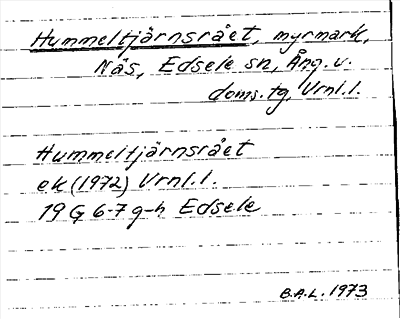 Hummeltjärnsrået, myrmark,
Näs, Edsele sn, Ång. v.
doms. tg, Vrnl.l.
Hummeltjärnsrået
ek (1972) Vrnl.l.
19 G 6-7 g-h Edsele
B.A.L. 1973